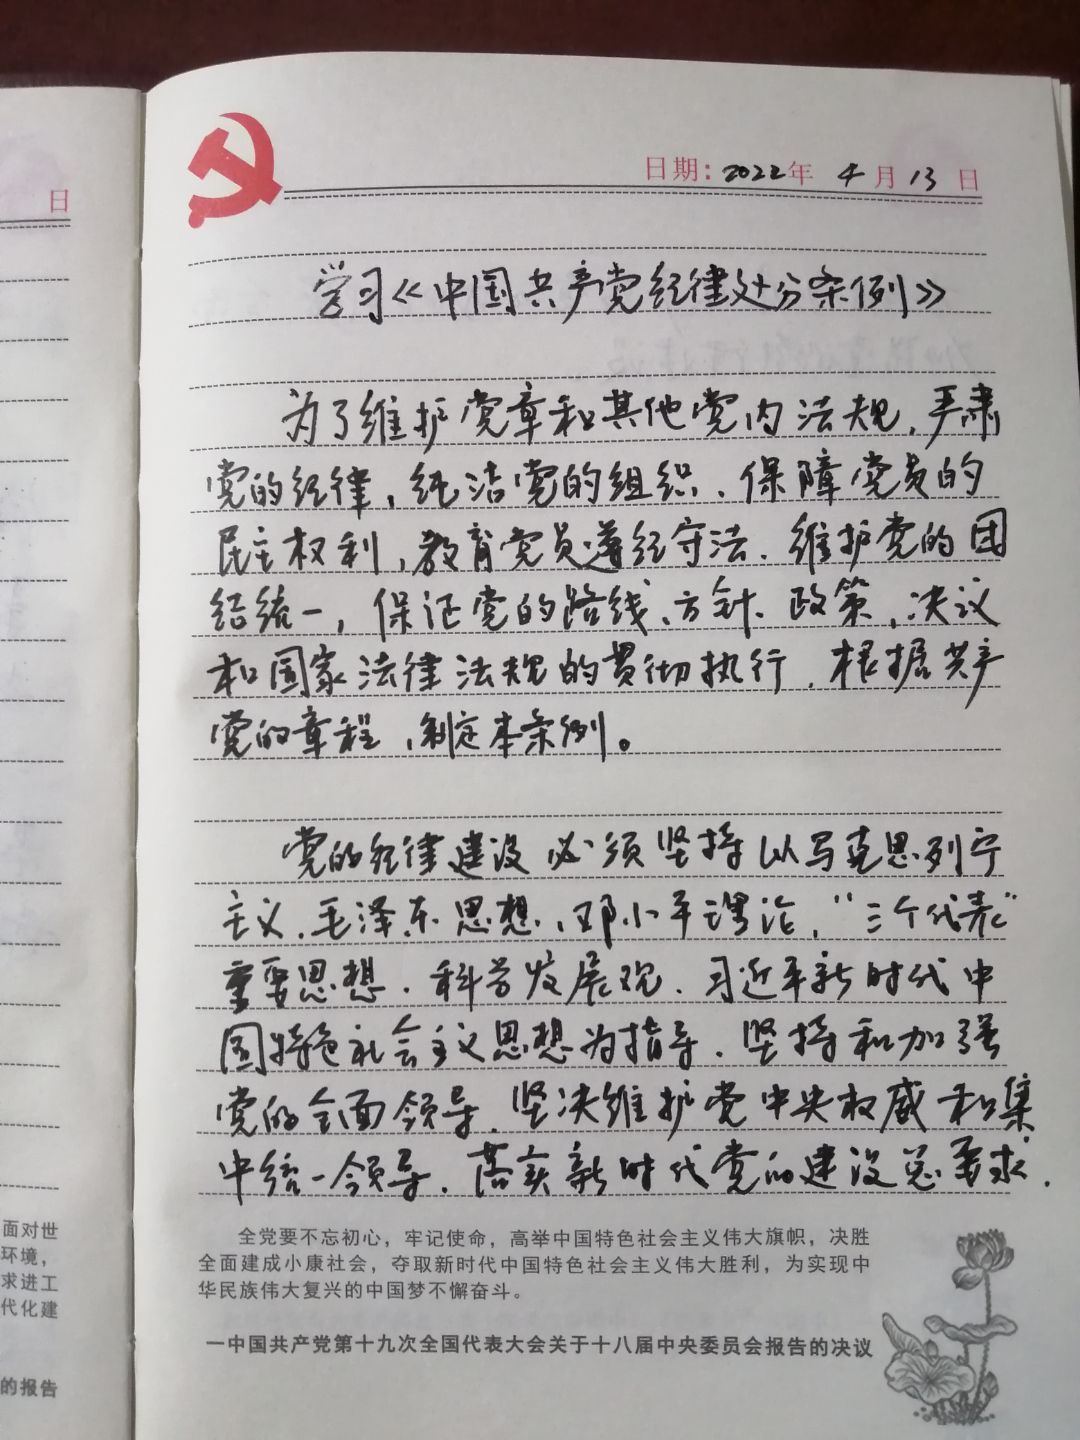 日
日期：2022年 4月 13日
学习《中国共产党纪律处分条例》
为了维护党章和其他党内法规，严肃
党的纪律，纯洁党的组织，保障党员的
民主权利，教育党员遵纪守法，维护党的团
结统一，保证党的路线、方针、政策、决议
和国家法律法规的贯彻执行，根据共产
党的章程，制定本条例。
党的纪律建设必须坚持以马克思列宁
主义、毛泽东思想、邓小平理论，“三个代表”
重要思想，科学发展观，习近平新时代中
国特色社会主义思想为指导，坚持和加强
党的全面领导，坚决维护党中央权威和集
中统一领导，落实新时代党的建设总要求，
全党要不忘初心，牢记使命，高举中国特色社会主义伟大旗帜，决胜
全面建成小康社会，夺取新时代中国特色社会主义伟大胜利，为实现中
华民族伟大复兴的中国梦不懈奋斗。
一中国共产党第十九次全国代表大会关于十八届中央委员会报告的决议
面对世
环境，
求进工
代化建
的报告